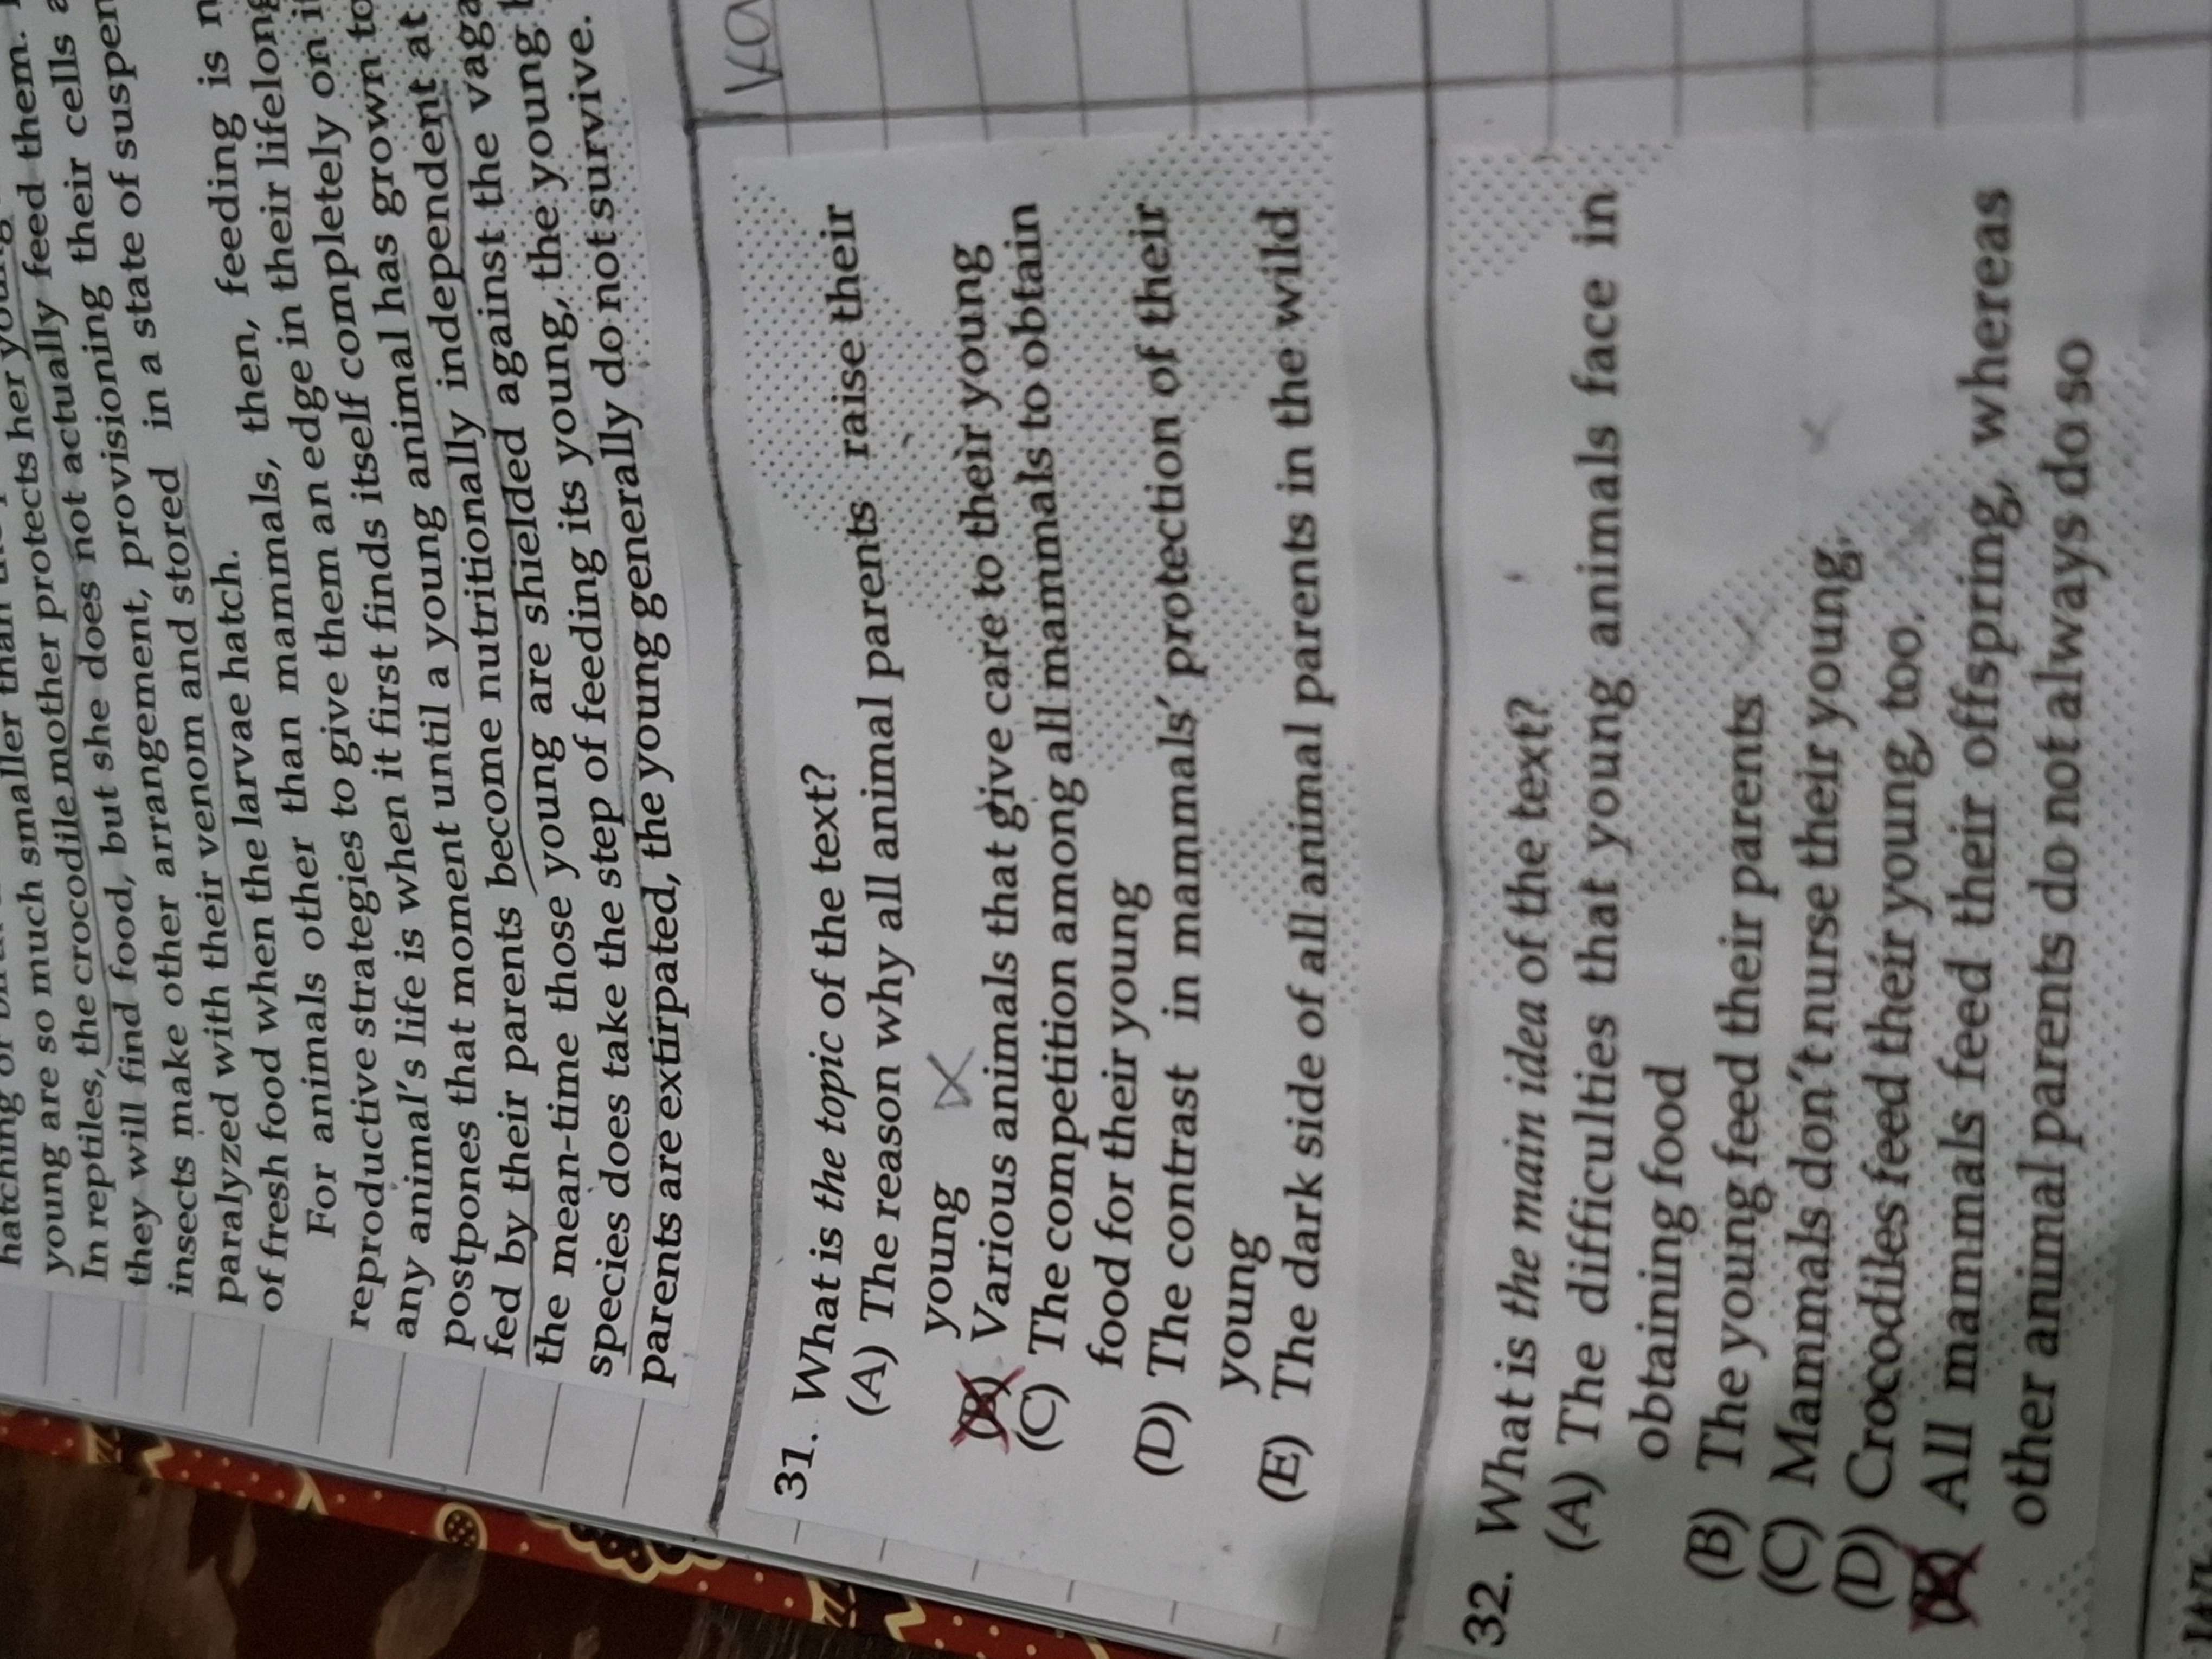 young are so much smaller than
In reptiles, the crocodile mother protects her young
they will find food, but she does not actually feed them.
insects make other arrangement, provisioning their cells
paralyzed with their venom and stored in a state of
of fresh food when the larvae hatch.
For animals other than mammals, then, feeding is
reproductive strategies to give them an edge in their lifelong
any animal's life is when it first finds itself completely on
postpones that moment until a young animal has grown to
fed by their parents become nutritionally independent at
the mean-time those young are shielded against the
species does take the step of feeding its young, the young
parents are extirpated, the young generally do not survive.
31. What is the topic of the text?
(A) The reason why all animal parents raise their
young
(B) Various animals that give care to their young
(C) The competition among all mammals to obtain
food for their young
(D) The contrast in mammals' protection of their
young
(E) The dark side of all animal parents in the wild
32. What is the main idea of the text?
(A) The difficulties that young animals face in
obtaining food
(B) The young feed their parents
(C) Mammals don't nurse their young
(D) Crocodiles feed their young too.
(E) All mammals feed their offspring, whereas
other animal parents do not always do so